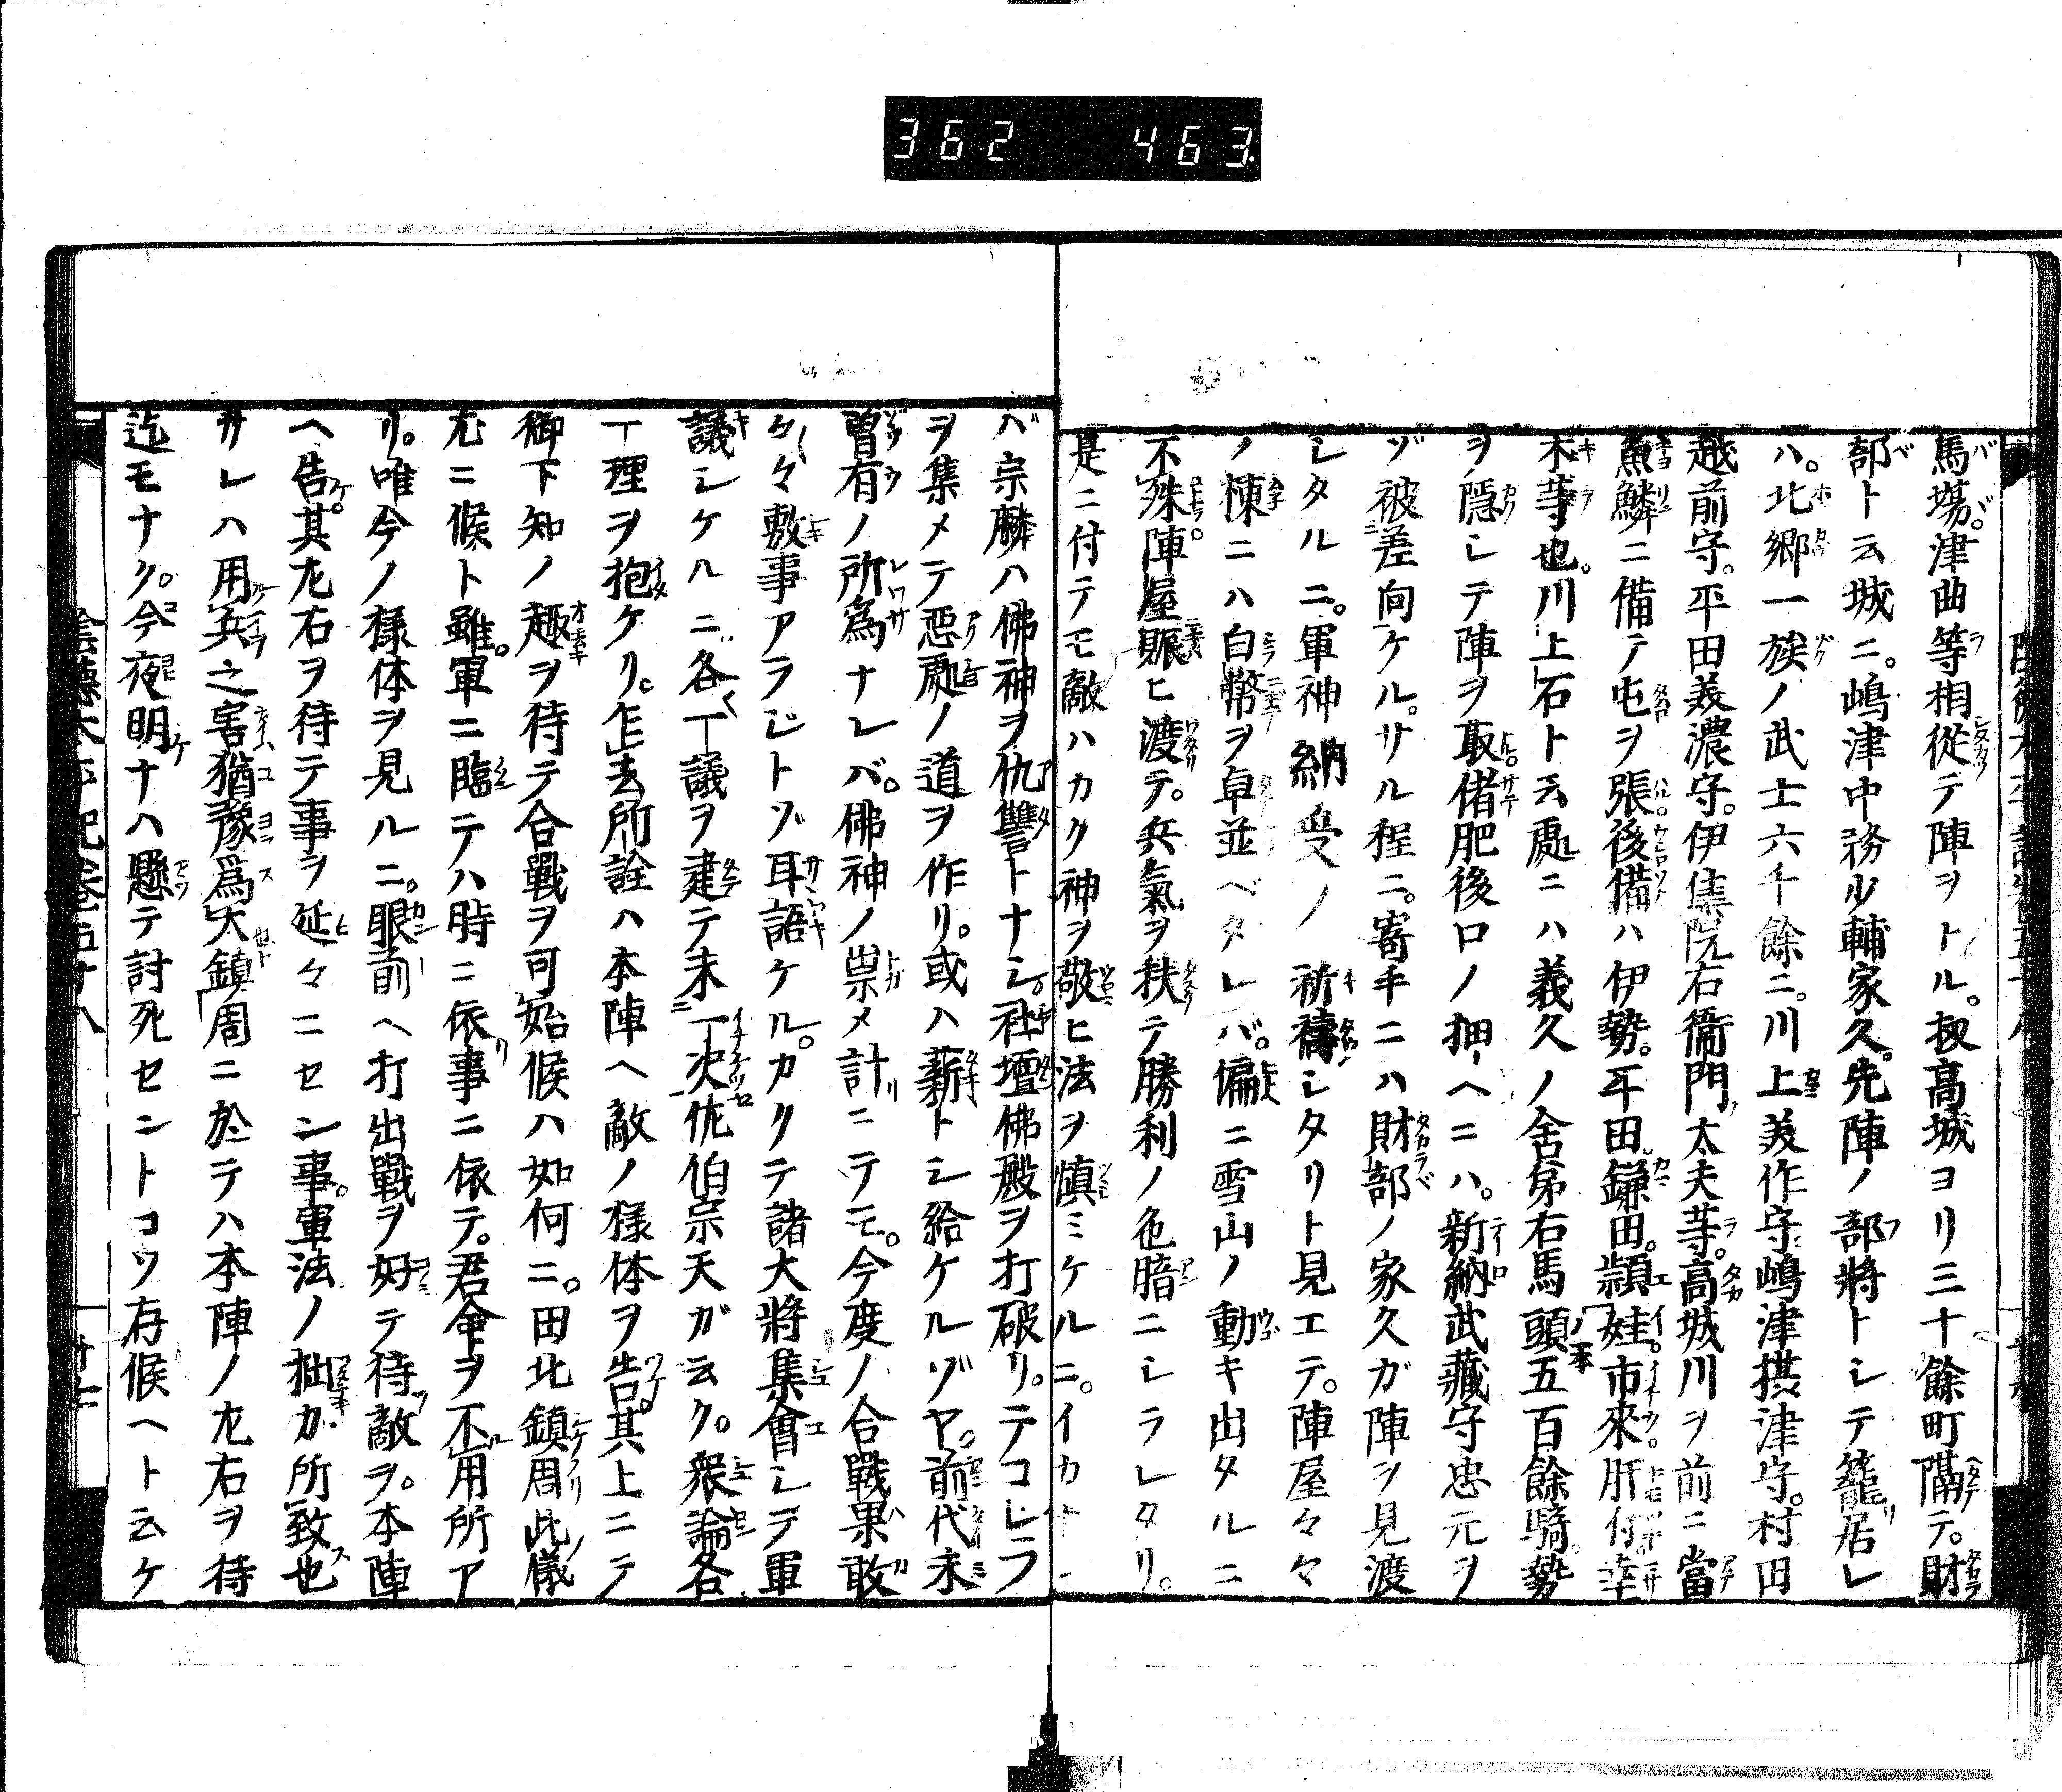 362 463
馬場。津曲等相從テ陣ヲトル。扨高城ヨリ三十餘町隔テ。財
部ト云城ニ。嶋津中務少輔家久。先陣ノ部將トシテ籠居レ
ハ。北郷一族ノ武士六千餘ニ。川上美作守。嶋津摂津守。村田
越前守。平田美濃守。伊集院右衞門太夫等。高城川ヲ前ニ當
魚鱗ニ備テ屯ヲ張。後備ハ伊勢。平田。鎌田。頴娃。市來。肝付。幸
木等也。川上石ト云處ニハ義久ノ舍弟右馬頭五百餘騎。勢
ヲ隱レテ陣ヲ取。偖肥後口ノ押ヘニハ。新納武藏守忠元ヲ
ゾ被差向ケル。サル程ニ。寄手ニハ財部ノ家久ガ陣ヲ見渡
シタルニ。軍神納受ノ祈禱シタリト見エテ。陣屋々々
ノ棟ニハ白幣ヲ立並ベタレバ。偏ニ雪山ノ動キ出タルニ
不殊。陣屋賑ヒ渡テ。兵氣ヲ扶テ勝利ノ色暗ニシラレタリ。
是ニ付テモ敵ハカク神ヲ敬ヒ法ヲ慎ミケルニ。イカ
バ宗麟ハ佛神ヲ仇讐トナシ。社壇佛殿ヲ打破リ。テコレラ
ヲ集メテ惡處ノ道ヲ作リ。或ハ薪トシ給ケルゾヤ。前代未
曽有ノ所爲ナレバ。佛神ノ祟メ計ニテモ。今度ノ合戰果敢
々々敷事アラジトゾ耳語ケル。カクテ諸大將集會シテ軍
議シケルニ。各丁議ヲ建テ未一決。佐伯宗天ガ云ク。衆論各
丁理ヲ抱ケリ。乍去所詮ハ本陣ヘ敵ノ様体ヲ告。其上ニテ
御下知ノ趣ヲ待テ合戰ヲ可始候ハ如何ニ。田北鎮周此儀
尤ニ候ト雖。軍ニ臨テハ時ニ依事ニ依テ。君命ヲ不用所ア
リ。唯今ノ様体ヲ見ルニ。眼前ヘ打出戰ヲ好テ待敵ヲ。本陣
ヘ告。其左右ヲ待テ事ヲ延々ニセン事。軍法ノ拙カ所致也
サレハ用兵之害猶豫爲大。鎮周ニ於テハ本陣ノ左右ヲ待
迄モナク。今夜明ナハ懸テ討死セントコソ存候ヘト云ケ
陰德太平記卷五十八